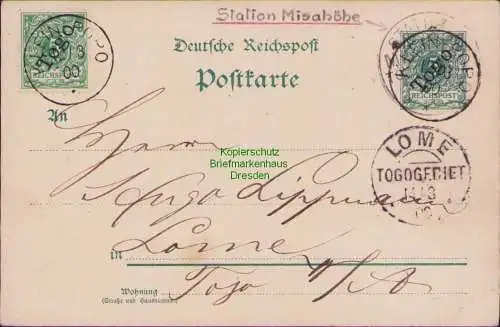 Station Misahöhe
Deutsche Reichspost
Postkarte
KLEIN-POPO
Togo
REICHSPOST
Togo
REICHSPOST
An
Herrn
Hugo Lippmann
in Lome
Togo W/A
LOME
TOGOGEBIET
Kopierschutz
Briefmarkenhaus
Dresden
Wohnung
(Straße und Hausnummer)